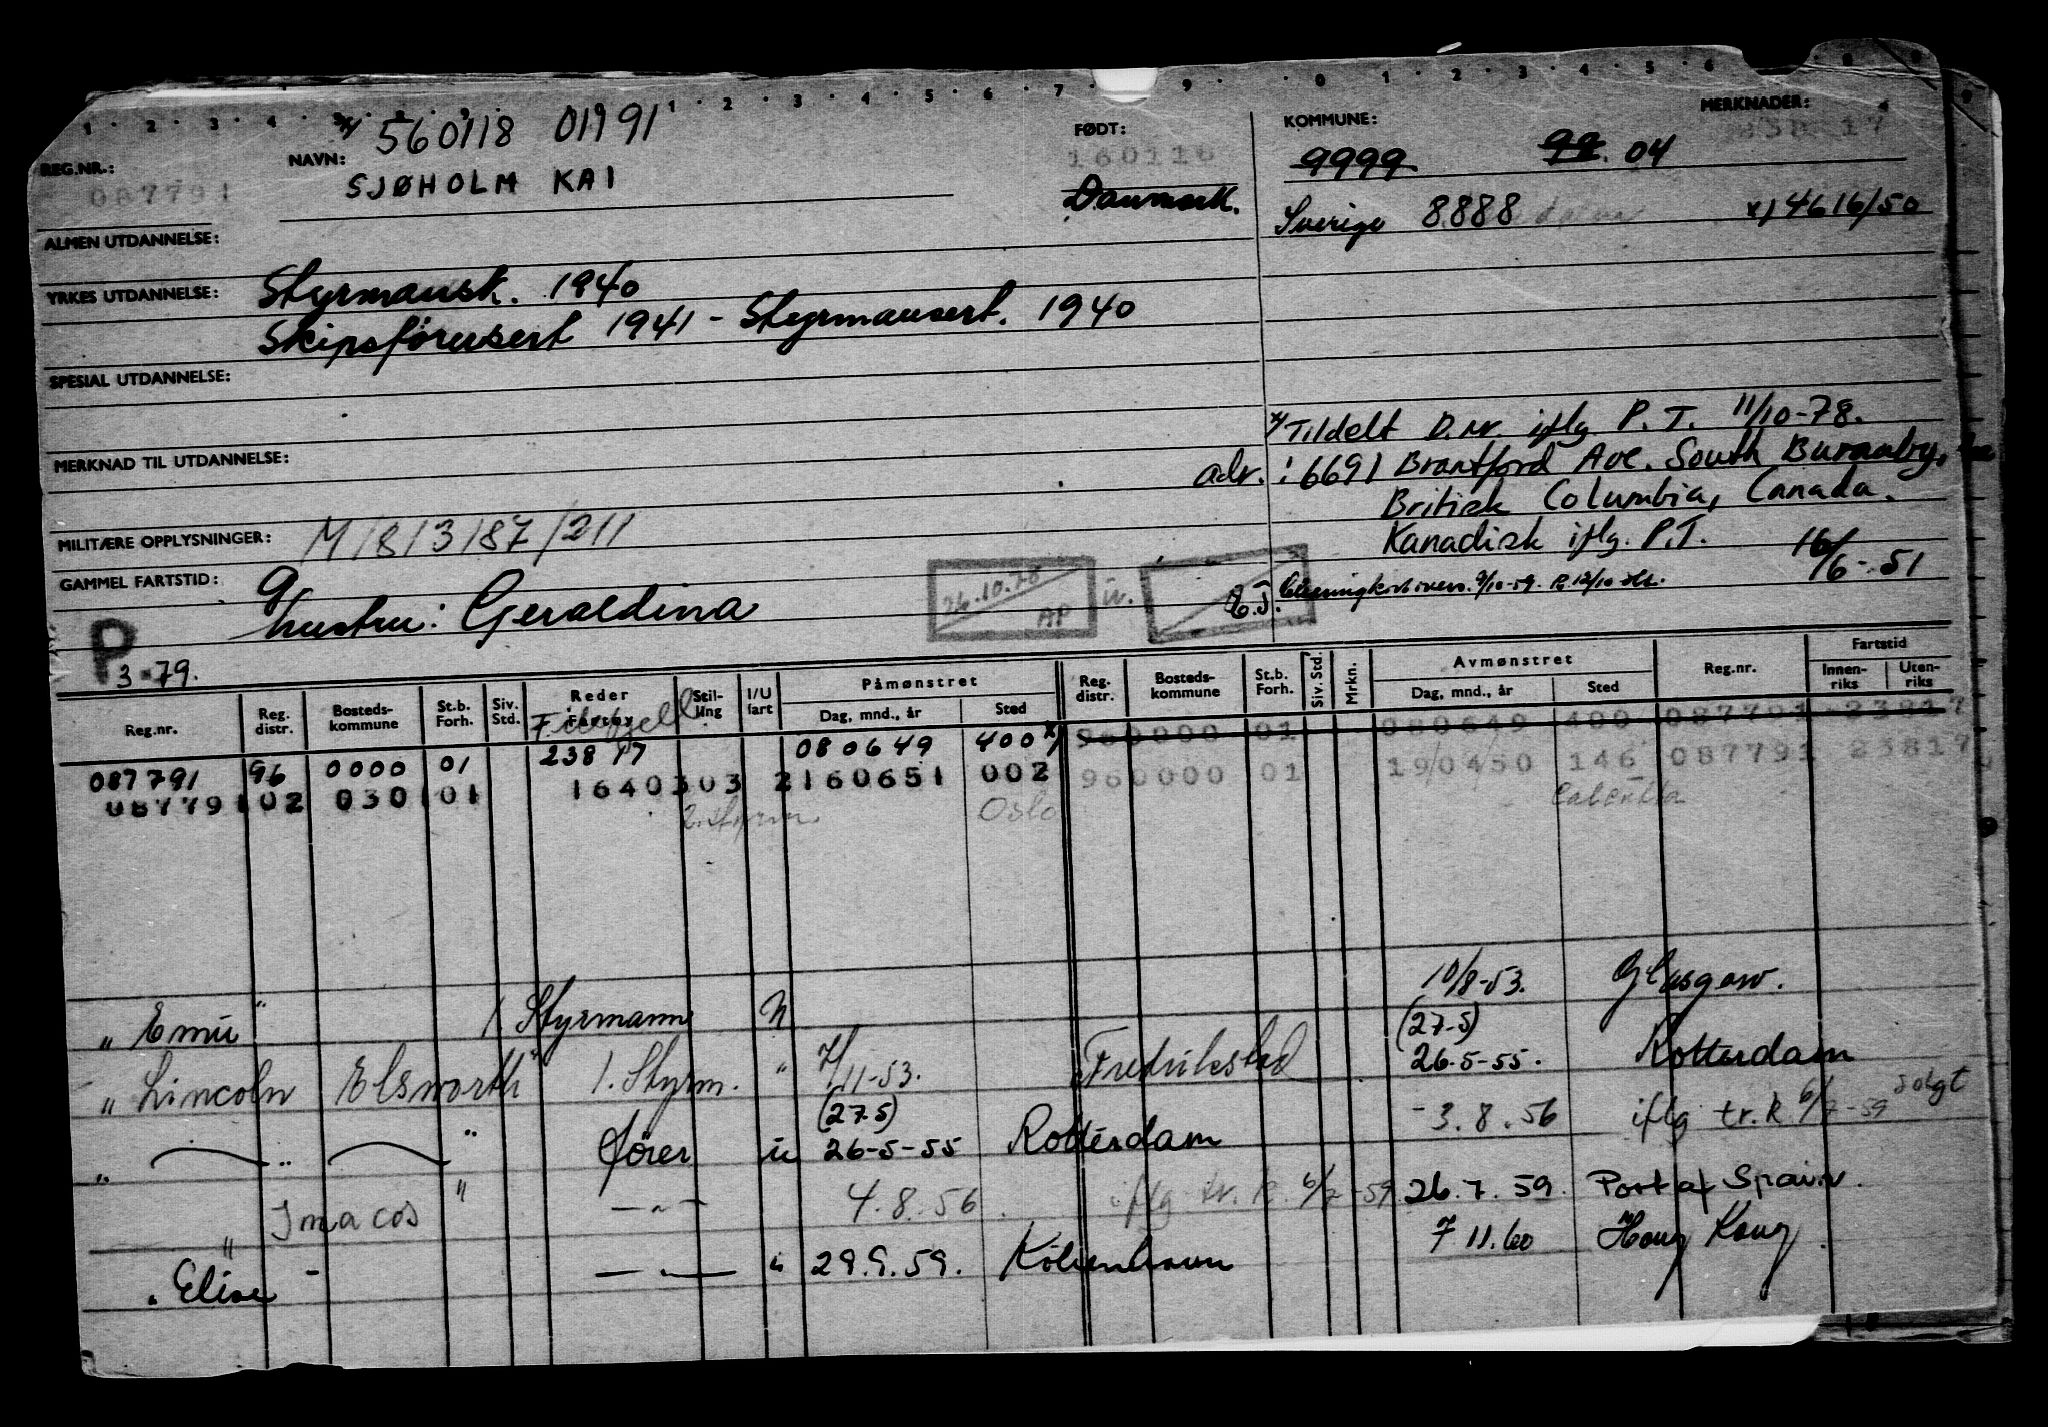 x) 560118 01991
REG.NR.: 087791
NAVN: SJØHOLM KAI
FØDT: 160118
Danmark.
KOMMUNE: 9999 99. 04
MERKNADER:
Sverige 8888 x) 4616/50
ALMEN UTDANNELSE:
YRKES UTDANNELSE: Styrmansk. 1940
Skipsførersert 1941 - Styrmansert. 1940
SPESIAL UTDANNELSE:
x) Tildelt D.nr. iflg P.T. 11/10-78.
MERKNAD TIL UTDANNELSE:
adr.: 6691 Brantford Ave. South Burnaby,
British Columbia, Canada.
MILITÆRE OPPLYSNINGER: M/8/3/87/211
Kanadisk iflg. P.T. 16/6-51
GAMMEL FARTSTID:
Hustru: Geraldina
26.10.78 AP
P 3-79.
Reg.nr. Reg. distr. Bosteds-kommune St.b. Forh. Siv. Std. Reder Fartøy Stil-ling I/U fart Påmønstret Dag, mnd., år Sted Reg. distr. Bosteds-kommune St.b. Forh. Siv. Std. Mrkn. Avmønstret Dag, mnd., år Sted Reg.nr. Fartstid Innen-riks Uten-riks
Filefjell
087791 96 0000 01 23817 080649 400 x) 960000 01 080649 400 087791 23817
087791 02 0301 01 1640303 2 160651 002 960000 01 190450 146 087791 23817
2. styrm. Oslo Calcutta
" Emu " 1. Styrmann u 10/8-53. Glasgow.
" Lincoln Elsworth " 1. Styrm. " 7/11-53. Fredrikstad (27-5) 26-5-55. Rotterdam
" " " fører u (27-5) 26-5-55 Rotterdam - 3.8.56 iflg tr.k 6/7-59 solgt
" Imacos " - " - 4.8.56. iflg tr. k. 6/7-59 26.7.59. Port of Spain.
" Elise " " 29.9.59. København 7 11.60 Hong Kong.